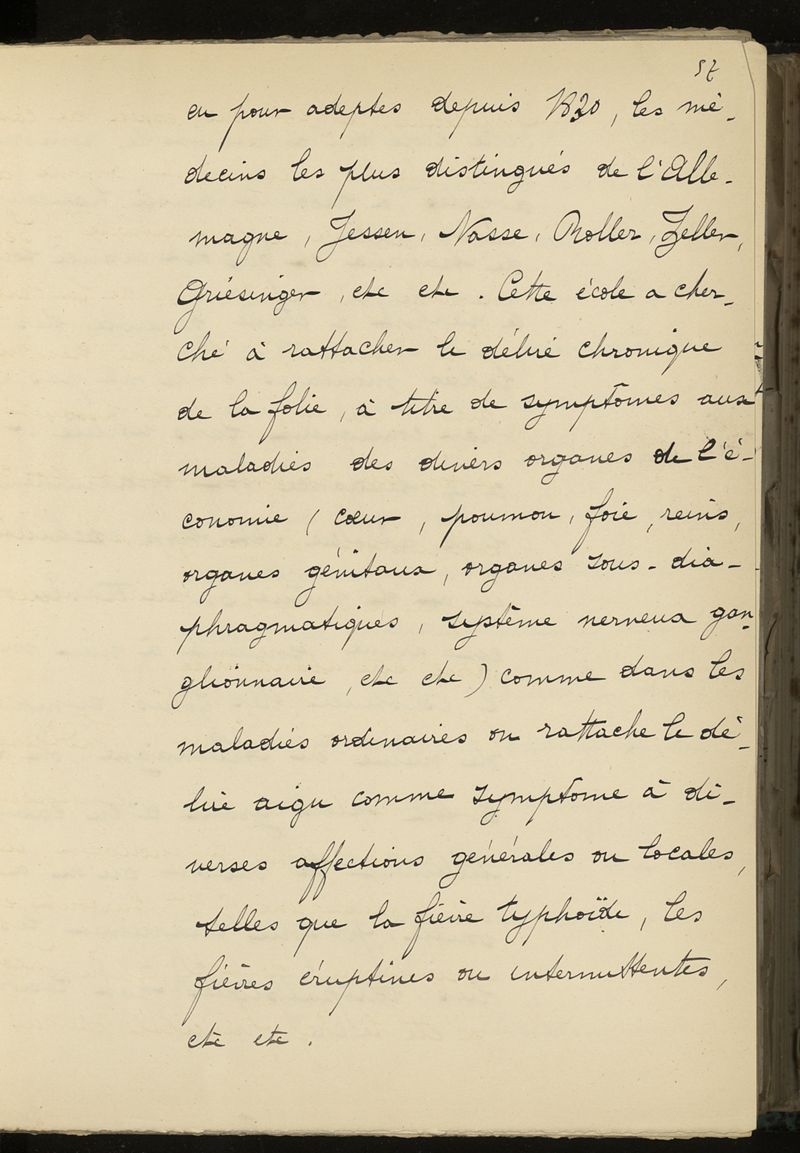 57
eu pour adeptes depuis 1820, les mé-
decins les plus distingués de l'Alle-
magne, Jessen, Nasse, Roller, Zeller,
Griésinger, etc etc. Cette école a cher-
ché à rattacher le délire chronique
de la folie, à titre de symptômes aux
maladies des divers organes de l'é-
conomie (cœur, poumon, foie, reins,
organes génitaux, organes sous-dia-
phragmatiques, système nerveux gan-
glionnaire, etc etc) comme dans les
maladies ordinaires on rattache le dé-
lire aigu comme symptome à di-
verses affections générales ou locales,
telles que la fièvre typhoïde, les
fièvres éruptives ou intermittentes,
etc etc.